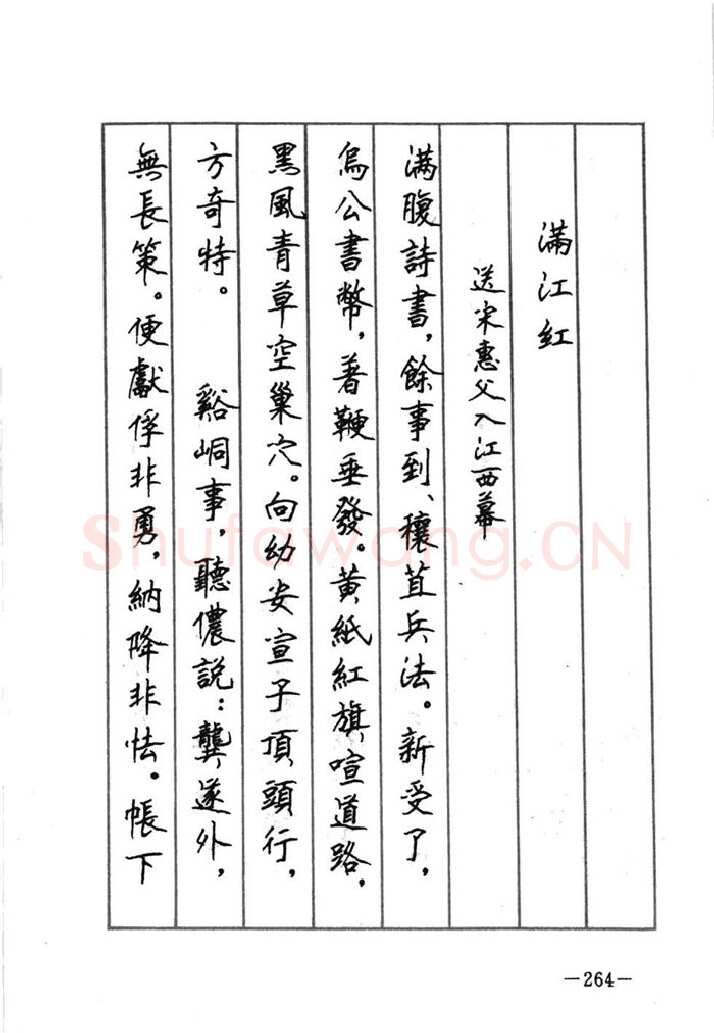 满江紅
送宋惠父入江西幕
满腹詩書，餘事到、穰苴兵法。新受了，
烏公書幣，着鞭垂發。黄紙紅旗喧道路，
黑風青草空巢穴。向幼安宣子頂頭行，
方奇特。　谿峒事，聽儂説：龔遂外，
無長策。便獻俘非勇，納降非怯。帳下
—264—
Shufawang.CN